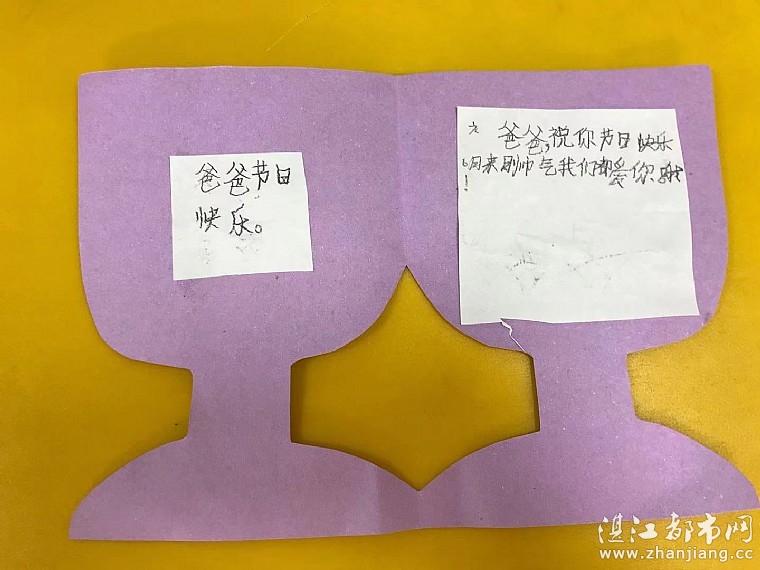 爸爸节日
快乐。
爸爸,祝你节日快乐
来 帅气我们都爱你
!
湛江都市网
www.zhanjiang.cc